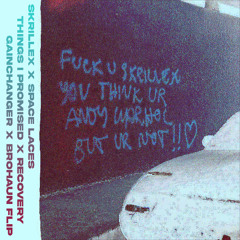 SKRILLEX X SPACE LACES
THINGS I PROMISED X RECOVERY
GAINCHANGER X BROHAUN FLIP
FUCK U SKRILLEX
YOU THINK UR
ANDY WARHOL
BUT UR NOT!!♡